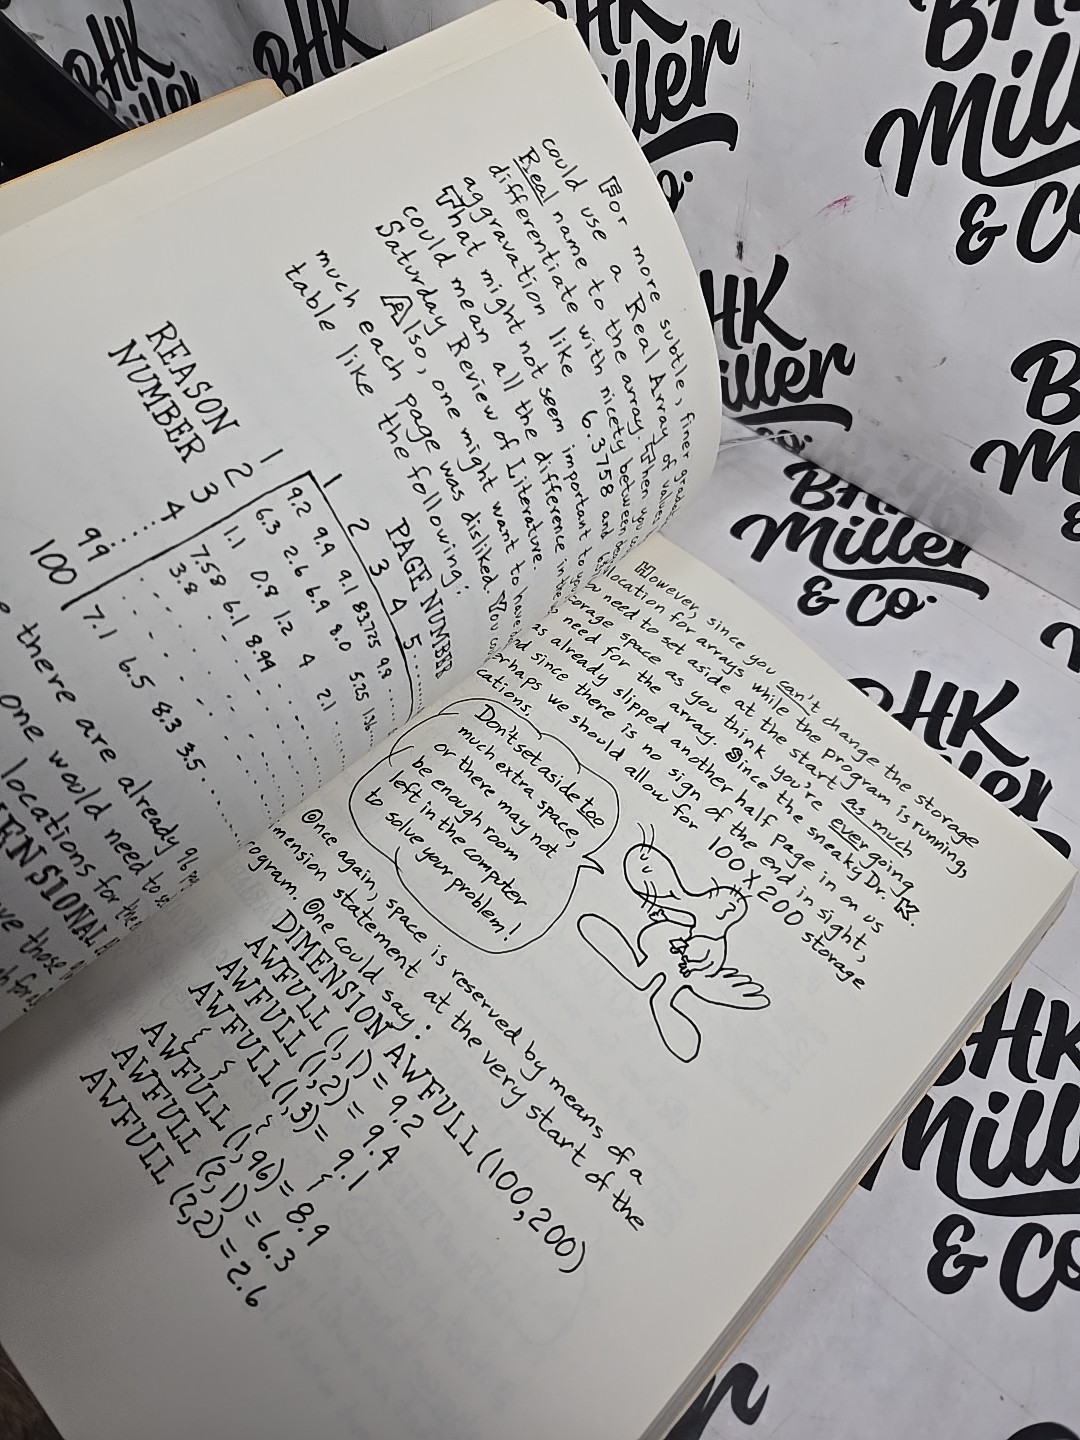 For more subtle, finer
could use a Real Array of values
Real name to the array. Then you
differentiate with nicety between
aggravation like 6.3758 and
That might not seem important to
could mean all the difference in the
Saturday Review of Literature.
Also, one might want to have
much each page was disliked. You
table like the following:
PAGE NUMBER
1 2 3 4 5 ......
REASON
NUMBER
1 9.2 9.4 9.1 83.725 9.9
2 6.3 2.6 6.9 8.0 5.25
3 1.1 0.8 1.2 4 2.1
4 7.58 6.1 8.94
3.8
99
100 7.1 6.5 8.3 3.5
there are already 96
one would need to
locations for the
However, since you can't change the storage
location for arrays while the program is running,
need to set aside at the start as much
storage space as you think you're ever going
need for the array. Since the sneaky Dr. K.
as already slipped another half page in on us
and since there is no sign of the end in sight,
perhaps we should allow for 100 X 200 storage
cations.
Don't set aside too
much extra space,
or there may not
be enough room
left in the computer
to solve your problem!
Once again, space is reserved by means of a
mension statement at the very start of the
rogram. One could say:
DIMENSION AWFULL (100,200)
AWFULL (1,1) = 9.2
AWFULL (1,2) = 9.4
AWFULL (1,3) = 9.1
AWFULL (1,96) = 8.9
AWFULL (2,1) = 6.3
AWFULL (2,2) = 2.6
BHK
Miller
& Co.
BHK
Miller
& Co.
BHK
Miller
& Co.
BHK
Miller
& Co.